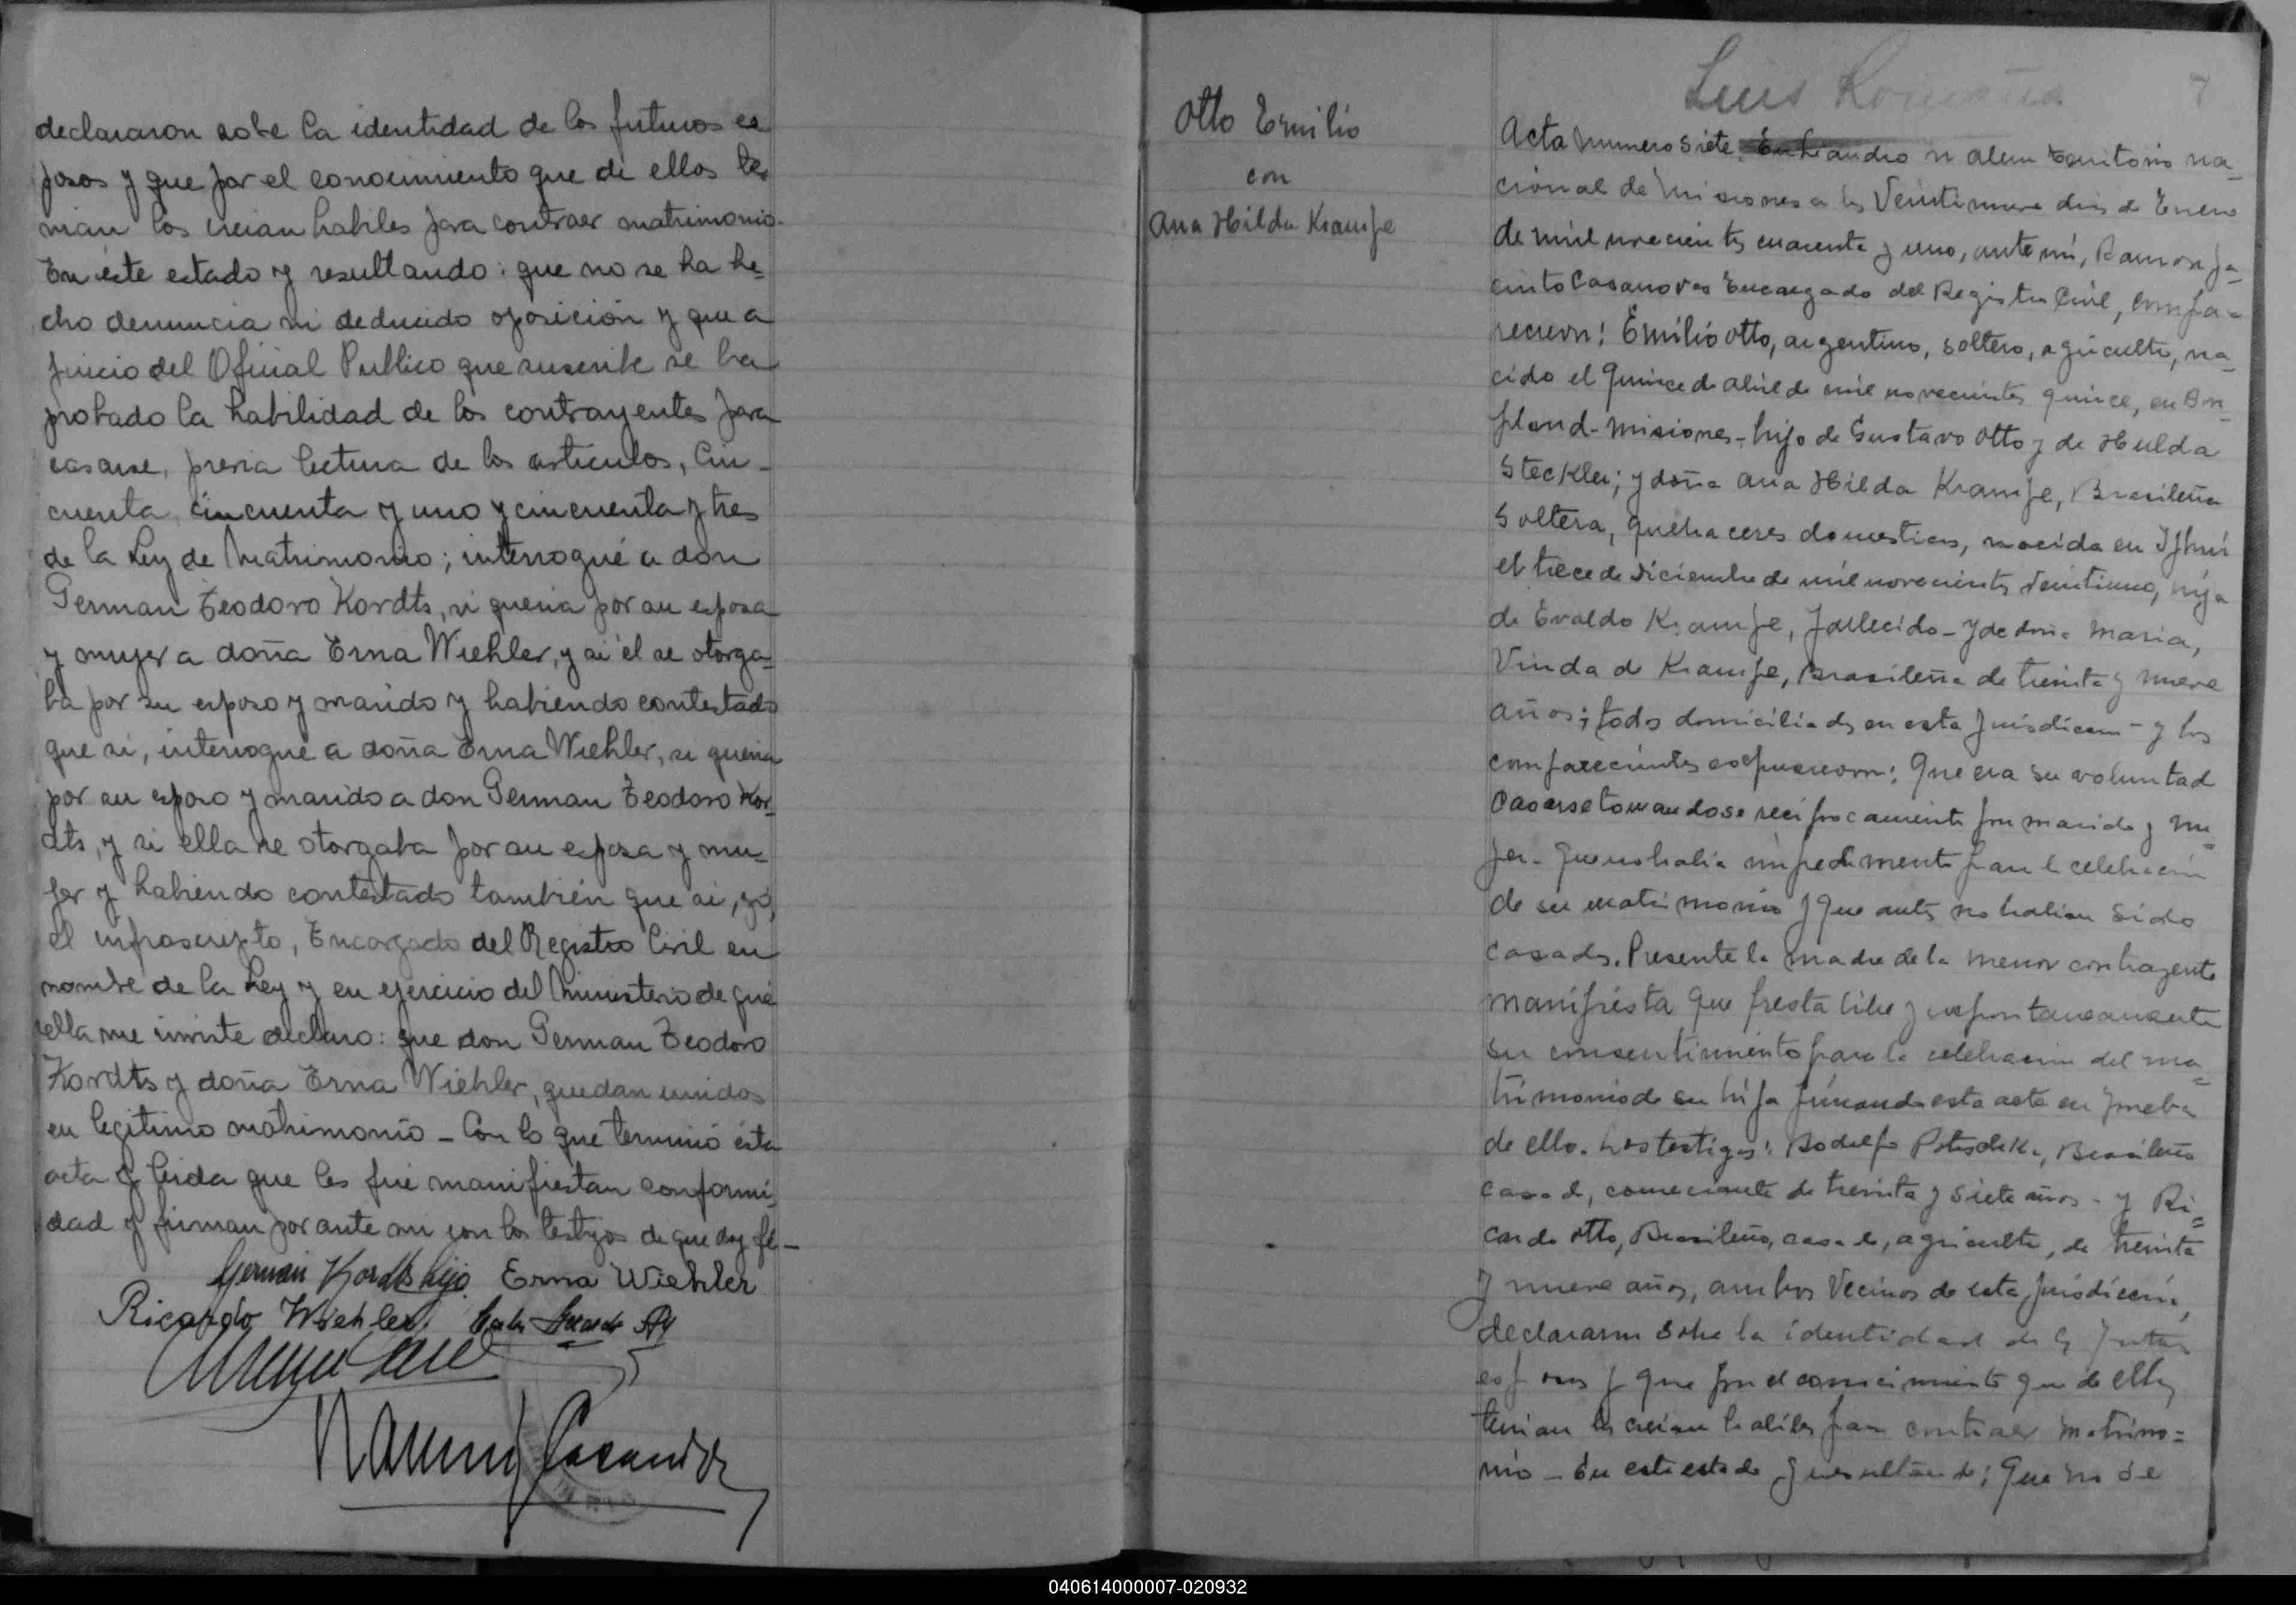 declararon sobe la identidad de los futuros es
posos y que por el conocimiento que de ellos te=
nian los creian habiles para contraer matrimonio-
En éste estado y resultando: que no se ha he=
cho denuncia ni deducido oposición y que a
juicio del Oficial Publico que suscribe se ha
probado la habilidad de los contrayentes para
casarse, previa lectura de los articulos, Cin-
cuenta, cincuenta y uno y cincuenta y tres
de la Ley de Matrimonio; interrogué a don
German Teodoro Kordts, si queria por su esposa
y mujer a doña Erna Wiehler, y si él se otorga=
ba por su esposo y marido y habiendo contestado
que si, interrogué a doña Erna Wiehler, si queria
por su esposo y marido a don German Teodoro Kor=
dts, y si ella se otorgaba por su esposa y mu=
jer y habiendo contestado también que si, yó,
el infrascripto, Encargado del Registro Civil en
nombre de la Ley y en ejercicio del Ministerio de que
ella me inviste declaro: que don German Teodoro
Kordts y doña Erna Wiehler, quedan unidos
en legitimo matrimonio - Con lo que terminó ésta
acta y leida que les fué manifiestan conformi=
dad y firman por ante mi con los testigos de que doy fé-
German Kordts hijo. Erna Wiehler
Ricardo Wiehler.
Otto Emilio
con
Ana Hilda Krampe
Luis
7
Acta Numero Siete. En Leandro n alem territorio na=
cional de Misiones a los Veintinueve dias de Enero
de mil novecientos cuarenta y uno, ante mi, Ramon Ja=
cinto Casanovas Encargado del Registro Civil, Compa=
recieron: Emilio Otto, argentino, soltero, agriculto, na=
cido el Quince de abril de mil novecientos quince, en Bon=
pland-Misiones-hijo de Gustavo Otto y de Hulda
Steckler; y doña Ana Hilda Krampe, Brasileña
Soltera, quehaceres domesticos, nacida en Ijhui
el trece de diciembre de mil novecientos veintiuno, hija
de Evaldo Krampe, fallecido-y de doña Maria,
Viuda de Krampe, Brasileña de treinta y nueve
años; todos domiciliados en esta Jurisdiccion - y los
comparecientes expusieron: Que era su voluntad
Casarse tomandose reciprocamente por marido y mu=
jer-que no habia impedimento para la celebración
de su matrimonio y que antes no habian sido
casados. Presente la madre de la menor contrayente
manifiesta que presta libre y espontaneamente
su consentimiento para la celebracion del ma=
trimonio de su hija firmando esta acta en prueba
de ello. Los testigos: Rodolfo Brasileño
casado, comerciante de treinta y siete años - y Ri=
cardo Otto, Brasileño, casado, agriculto, de treinta
y nueve años, ambos Vecinos de esta Jurisdiccion,
declararon sobre la identidad de los futuros
esposos y que por el conocimiento que de ellos
tenian los creian habiles para contraer matrimo=
nio - En este estado y resultando: Que no se
040614000007-020932